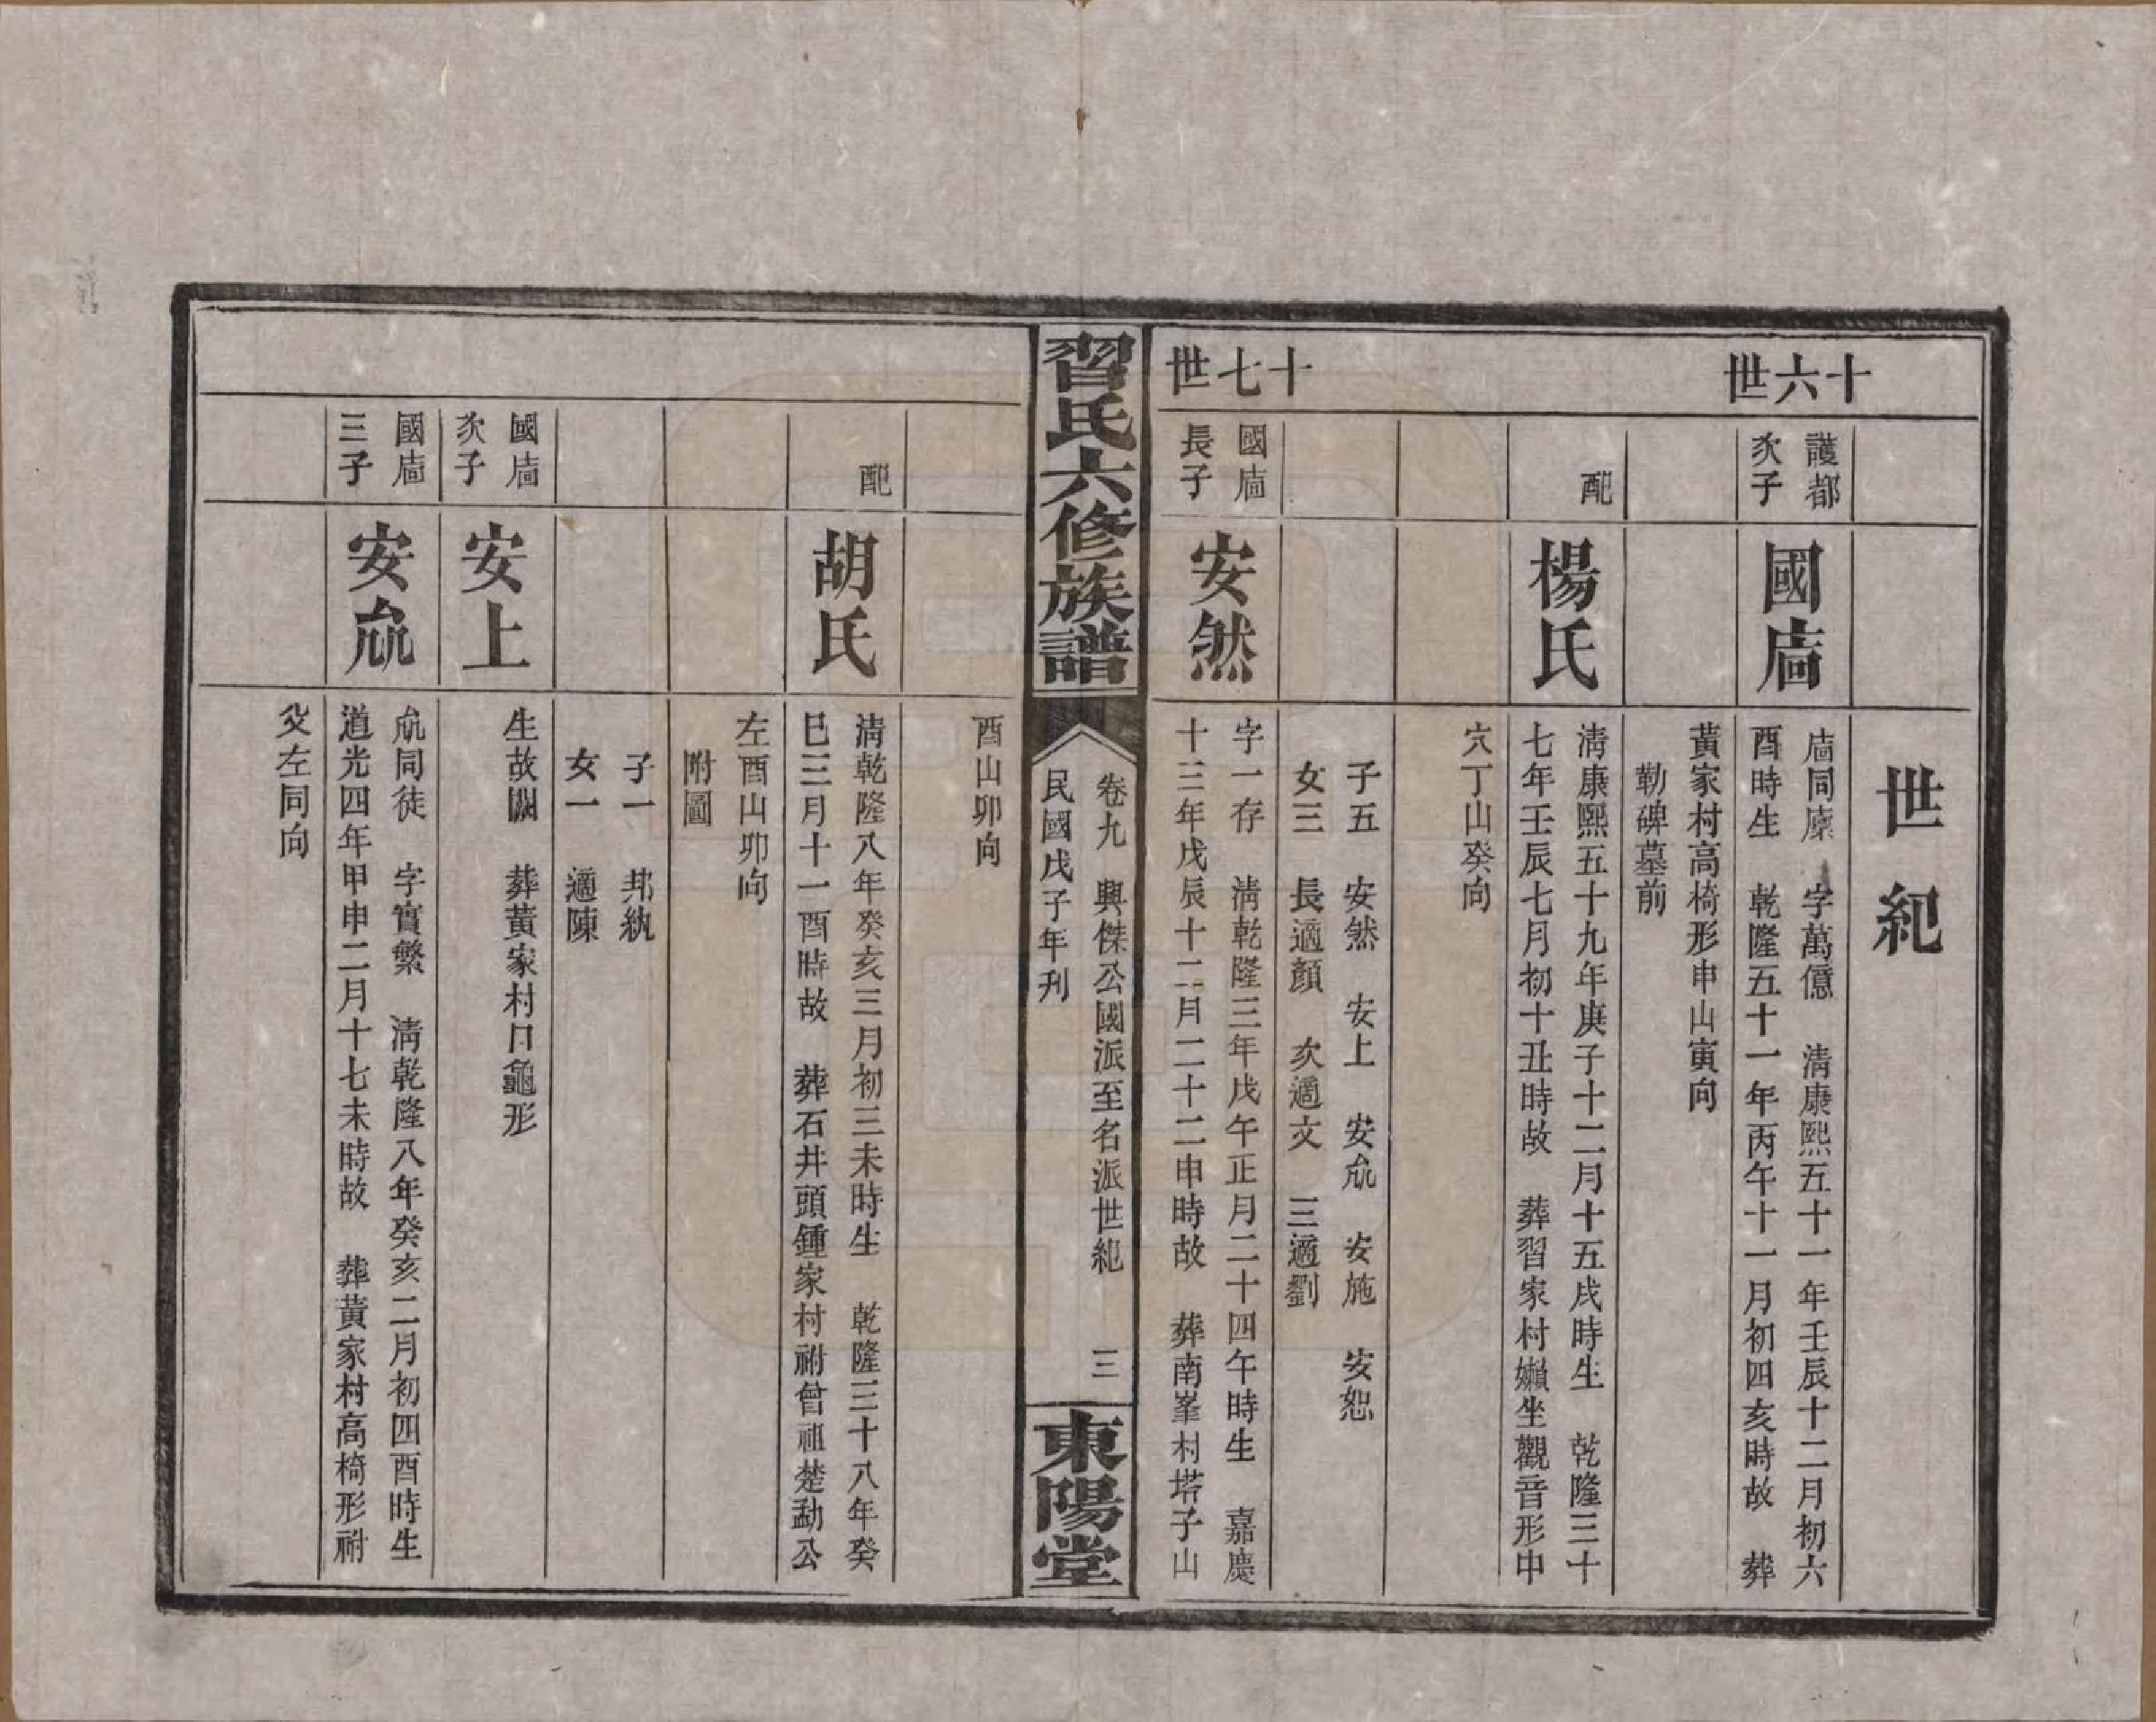 世紀
十六世
護都
次子
國庮
庮同廪 字萬億 清康熙五十一年壬辰十二月初六
酉時生 乾隆五十一年丙午十一月初四亥時故 葬
黃家村高椅形申山寅向
勒碑墓前
配
楊氏
清康熙五十九年庚子十二月十五戌時生 乾隆三十
七年壬辰七月初十丑時故 葬習家村嬾坐觀音形中
穴丁山癸向
子五 安然 安上 安㐬 安施 安恕
女三 長適顏 次適文 三適劉
十七世
國庮
長子
安然
字一存 清乾隆三年戊午正月二十四午時生 嘉慶
十三年戊辰十二月二十二申時故 葬南峯村塔子山
習氏六修族譜
卷九 興傑公國派至名派世紀 三
民國戊子年刋
東陽堂
酉山卯向
配
胡氏
清乾隆八年癸亥三月初三未時生 乾隆三十八年癸
巳三月十一酉時故 葬石井頭鍾家村祔曾祖楚勐公
左酉山卯向
附圖
子一 邦紈
女一 適陳
國庮
次子
安上
生故闕 葬黃家村日龜形
國庮
三子
同徒 字實繁 清乾隆八年癸亥二月初四酉時生
道光四年甲申二月十七未時故 葬黃家村高椅形祔
父左同向